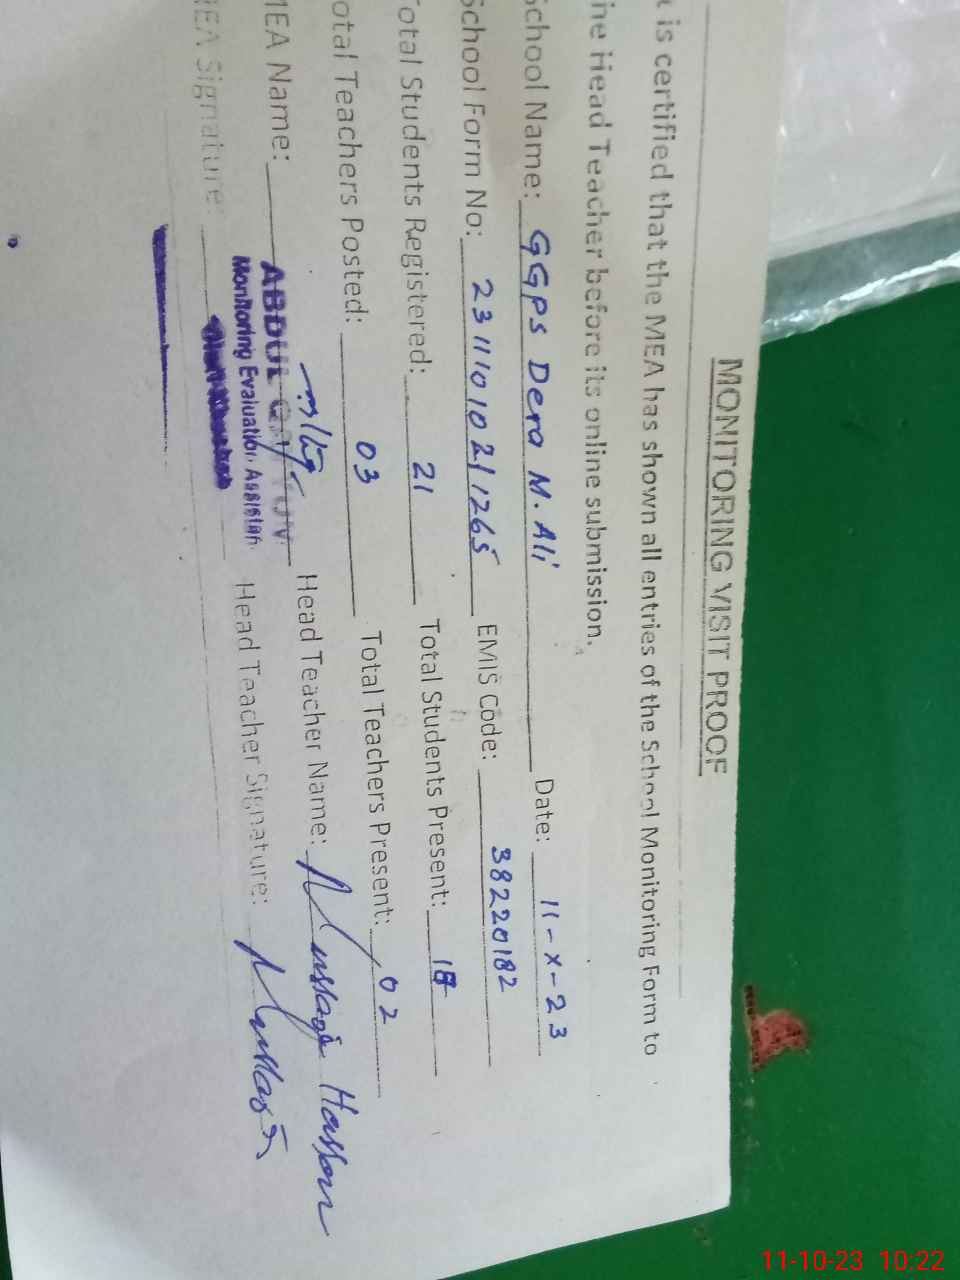 MONITORING VISIT PROOF
t is certified that the MEA has shown all entries of the School Monitoring Form to
he Head Teacher before its online submission.
School Name: GGPS Dera M. Ali Date: 11-X-23
School Form No: 2311101021 1265 EMIS Code: 38220182
Total Students Registered: 21 Total Students Present:
Total Teachers Posted: 03 Total Teachers Present: 02
MEA Name: ABDUL QAYYUM Head Teacher Name: Hassan
Monitoring Evaluation Assistan
MEA Signature: Head Teacher Signature:
11-10-23 10:22